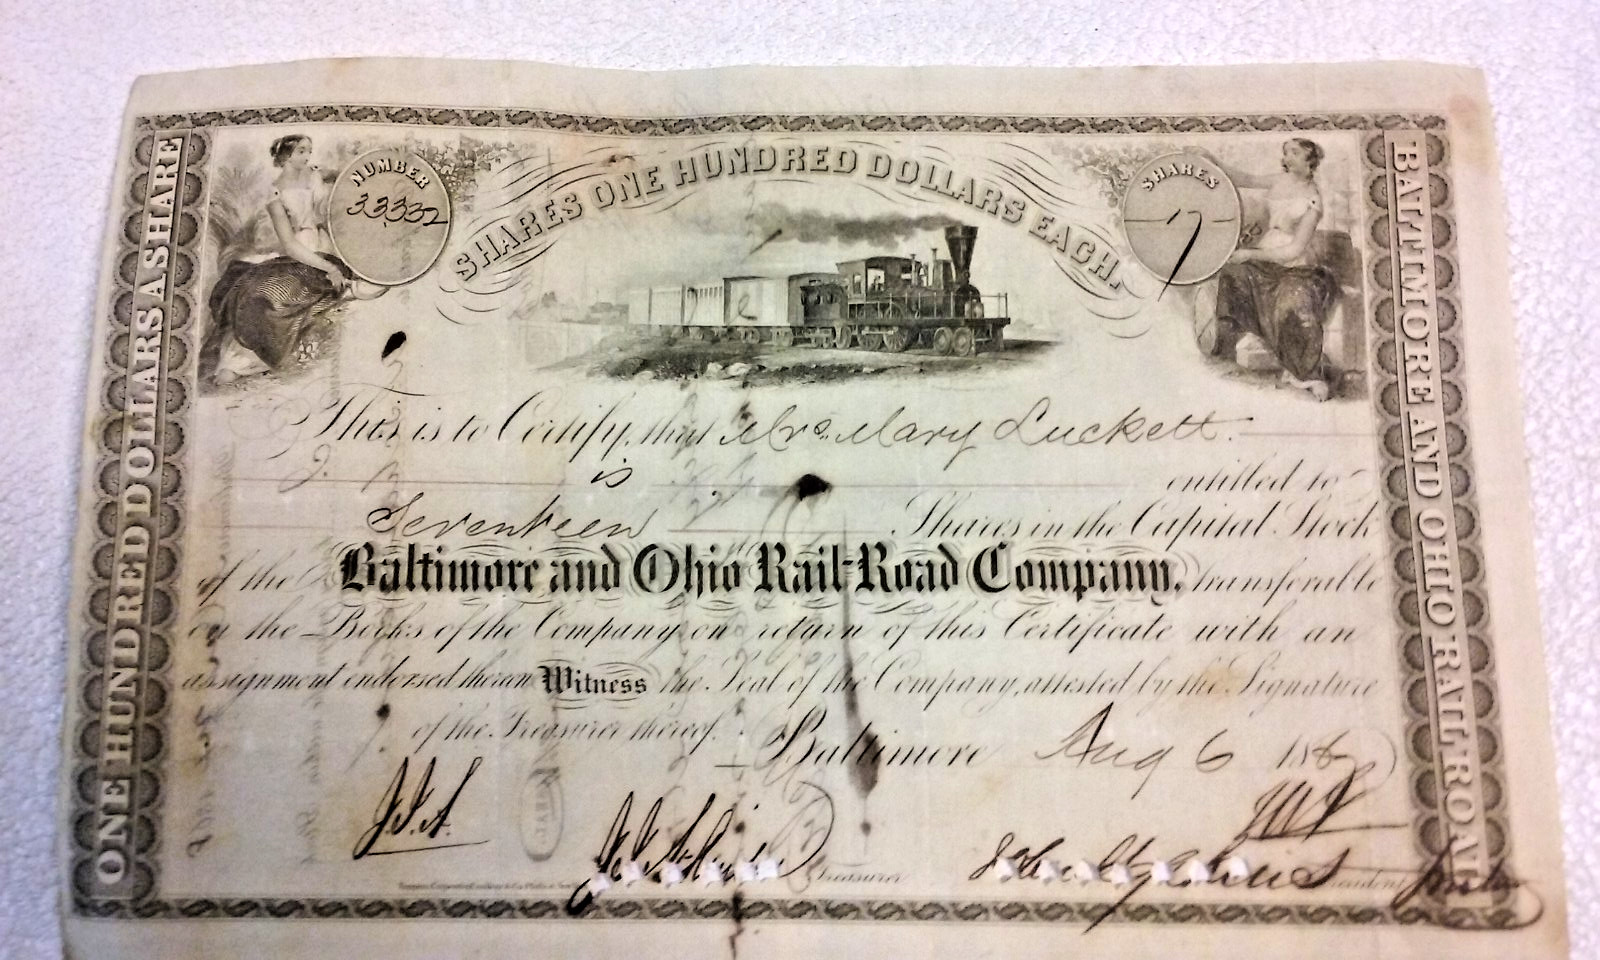 NUMBER
33332
SHARES ONE HUNDRED DOLLARS EACH.
SHARES
17
ONE HUNDRED DOLLARS A SHARE
BALTIMORE AND OHIO RAILROAD
This is to Certify, that Mrs. Mary Luckett.
is entitled to
Seventeen Shares in the Capital Stock
of the Baltimore and Ohio Rail-Road Company, transferable
on the Books of the Company on return of this Certificate with an
assignment endorsed theron Witness the Seal of the Company, attested by the Signature
of the Treasurer thereof. Baltimore Aug 6 186
Treasurer